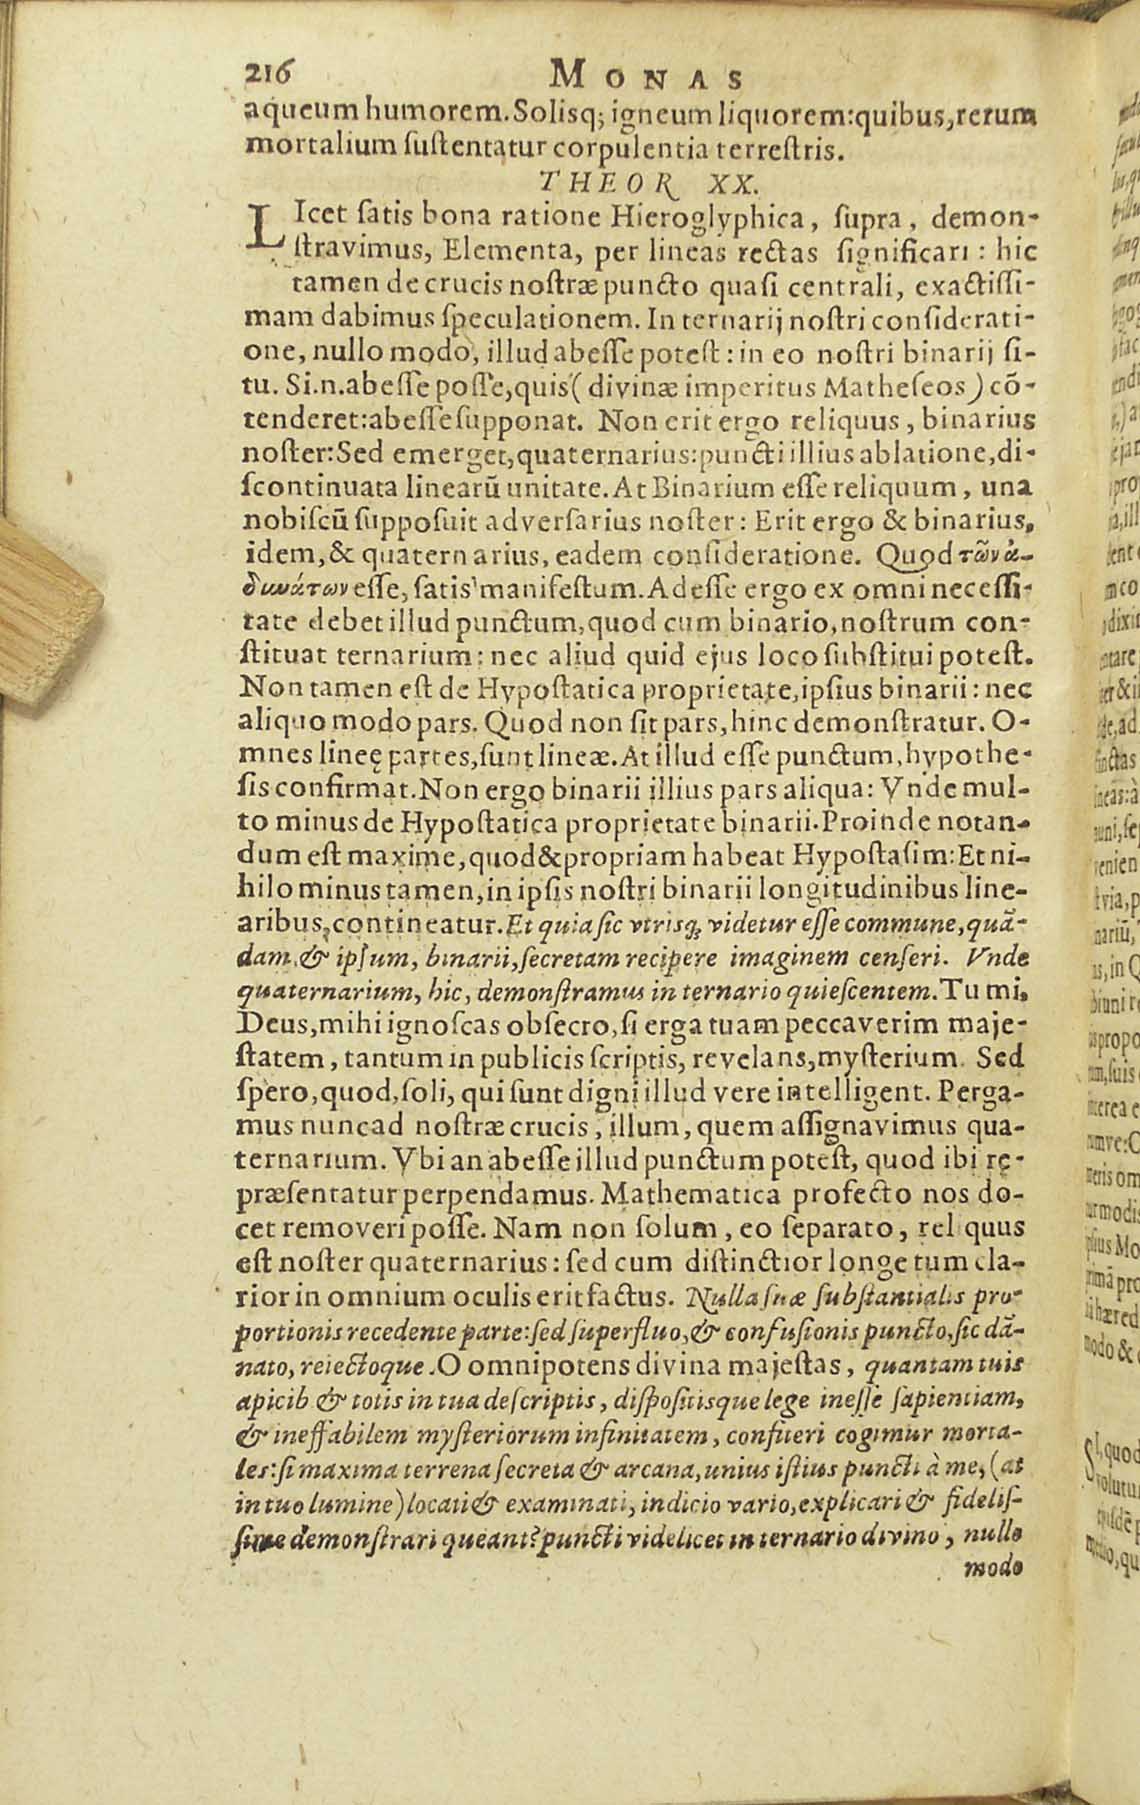 216 MONAS
aqueum humorem. Solisq; igneum liquorem: quibus, rerum
mortalium ſuſtentatur corpulentia terreſtris.
THEOR XX.
LIcet ſatis bona ratione Hieroglyphica, ſupra, demon-
ſtravimus, Elementa, per lineas rectas ſignificari: hic
tamen de crucis noſtræ puncto quaſi centrali, exactiſſi-
mam dabimus ſpeculationem. In ternarij noſtri conſiderati-
one, nullo modo, illud abeſſe poteſt: in eo noſtri binarij ſi-
tu. Si.n. abeſſe poſſe, quis (divinæ imperitus Matheſeos) cō-
tenderet: abeſſe ſupponat. Non erit ergo reliquus, binarius
noſter: Sed emerget, quaternarius: puncti illius ablatione, di-
ſcontinuata linearū unitate. At Binarium eſſe reliquum, una
nobiſcū ſuppoſuit adverſarius noſter: Erit ergo & binarius,
idem, & quaternarius, eadem conſideratione. Quod τῶν ἀ-
δυνάτων eſſe, ſatis manifeſtum. Adeſſe ergo ex omni neceſſi-
tate debet illud punctum, quod cum binario, noſtrum con-
ſtituat ternarium: nec aliud quid ejus loco ſubſtitui poteſt.
Non tamen eſt de Hypoſtatica proprietate, ipſius binarii: nec
aliquo modo pars. Quod non ſit pars, hinc demonſtratur. O-
mnes lineę partes, ſunt lineæ. At illud eſſe punctum, hypothe-
ſis confirmat. Non ergo binarii illius pars aliqua: Vnde mul-
to minus de Hypoſtatica proprietate binarii. Proinde notan-
dum eſt maxime, quod & propriam habeat Hypoſtaſim: Et ni-
hilo minus tamen, in ipſis noſtri binarii longitudinibus line-
aribus, contineatur. Et quia ſic vtrisq, videtur eſſe commune, quā-
dam, & ipſum, binarii, ſecretam recipere imaginem cenſeri. Vnde
quaternarium, hic, demonſtramus in ternario quieſcentem. Tu mi,
Deus, mihi ignoſcas obſecro, ſi erga tuam peccaverim maje-
ſtatem, tantum in publicis ſcriptis, revelans, myſterium. Sed
ſpero, quod, ſoli, qui ſunt digni illud vere intelligent. Perga-
mus nunc ad noſtræ crucis, illum, quem aſſignavimus qua-
ternarium. Vbi an abeſſe illud punctum poteſt, quod ibi rę-
præſentatur perpendamus. Mathematica profecto nos do-
cet removeri poſſe. Nam non ſolum, eo ſeparato, rel quus
eſt noſter quaternarius: ſed cum diſtinctior longe tum cla-
rior in omnium oculis erit factus. Nulla ſuæ ſubſtantialis pro-
portionis recedente parte: ſed ſuperfluo, & confuſionis puncto, ſic dā-
nato, reiectoque. O omnipotens divina majeſtas, quantam tuis
apicib & totis in tua deſcriptis, diſpoſitisque lege ineſſe ſapientiam,
& ineffabilem myſteriorum infinitatem, confiteri cogimur morta-
les: ſi maxima terrena ſecreta & arcana, unius iſtius puncti à me, (at
in tuo lumine) locati & examinati, indicio vario, explicari & fideliſ-
ſime demonſtrari queant? puncti videlicet in ternario divino, nullo
modo